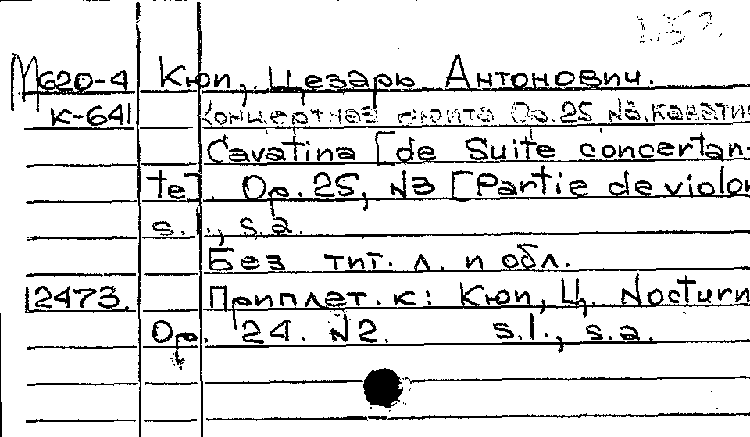 М620-4 Кюи, Цезарь Антонович.
К-641 Концертная сюита Op.25 №3. Кавати
Cavatina [de Suite concertan-
te]. Op.25, №3 [Partie de violon
s.l., s.a.
Без тит. л. и обл.
12473. Приплет. к: Кюи, Ц. Nocturn
Op. 24. №2. s.l., s.a.